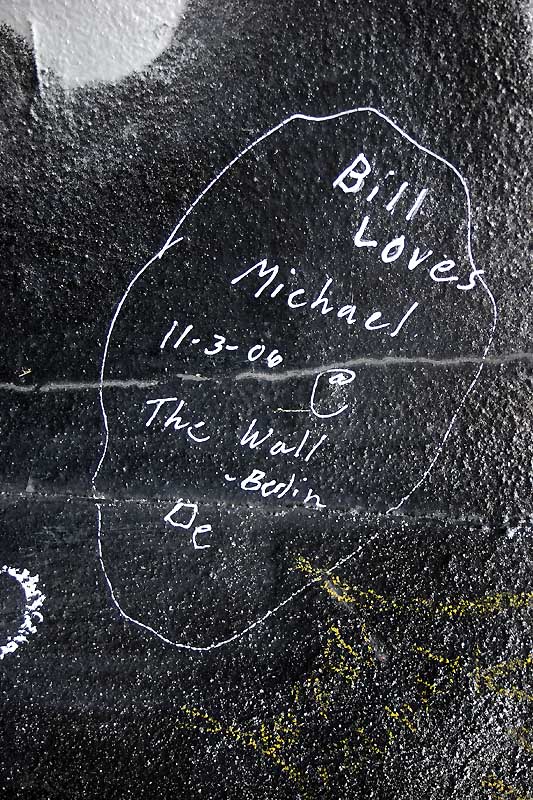 Bill
Loves
Michael
11-3-06
@
The Wall
-Berlin
De